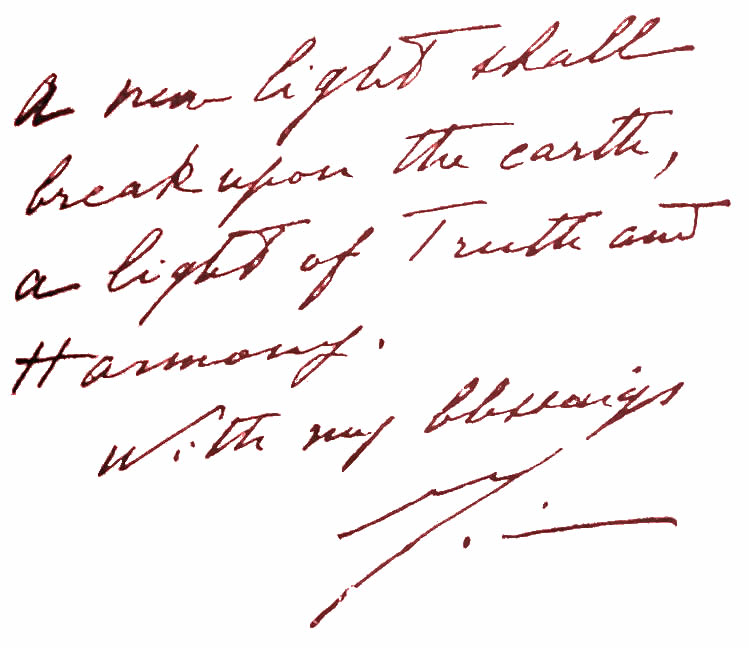 A new light shall
break upon the earth,
a light of Truth and
Harmony.
with my blessings